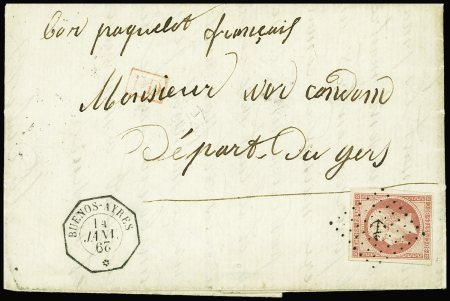 par paquebot français
Monsieur
condom
Départ. du gers
BUENOS-AYRES
14
JANV.
67